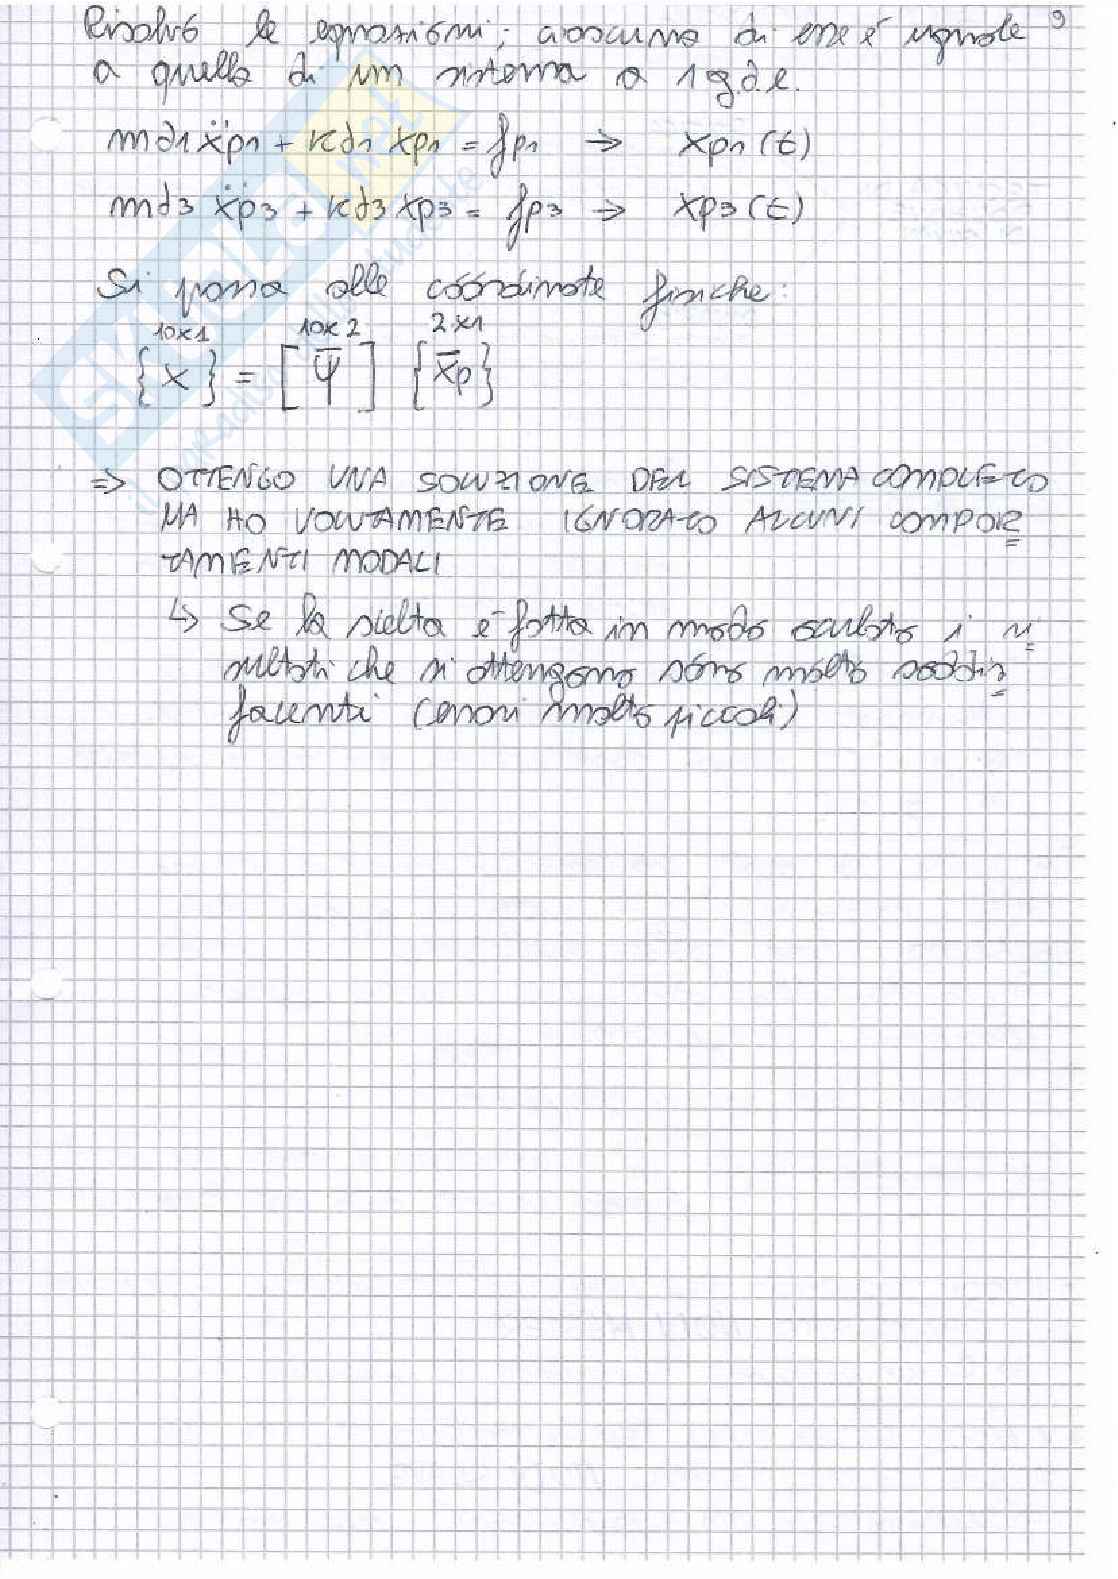 Risolvo le equazioni; ciascuna di esse è uguale 9
a quella di un sistema a 1 g.d.l.
md1 ẍp1 + kd1 xp1 = fp1 ⇒ xp1(t)
md3 ẍp3 + kd3 xp3 = fp3 ⇒ xp3(t)
Si passa alle coordinate fisiche:
10x1 10x2 2x1
{x} = [Ψ̅] {x̅p}
⇒ OTTENGO UNA SOLUZIONE DEL SISTEMA COMPLETO
MA HO VOLUTAMENTE IGNORATO ALCUNI COMPOR
TAMENTI MODALI
↳ Se la scelta è fatta in modo oculato i ri
sultati che si ottengono sono molto soddis
facenti (errori molto piccoli)